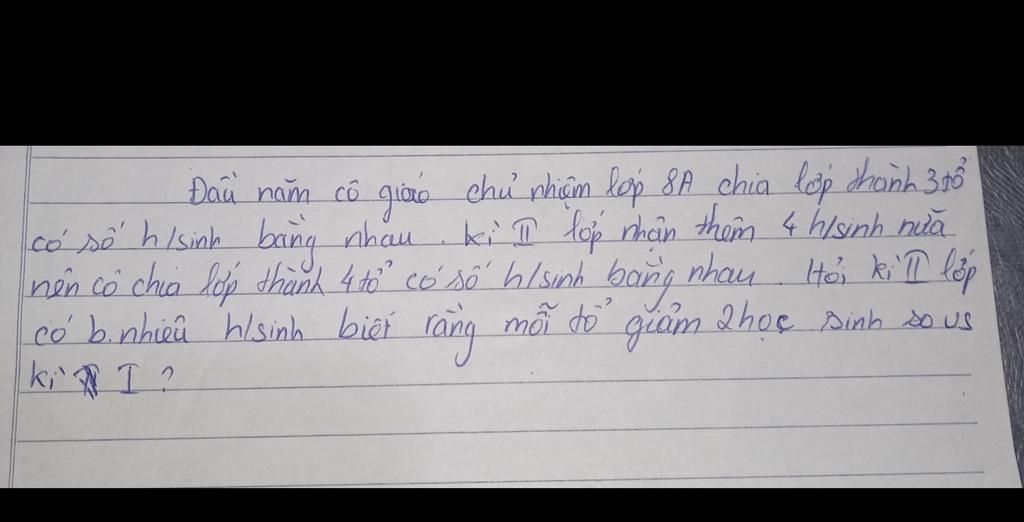 Đầu năm cô giáo chủ nhiệm lớp 8A chia lớp thành 3 tổ
có số h/sinh bằng nhau. kì II lớp nhận thêm 4 h/sinh nữa
nên cô chia lớp thành 4 tổ có số h/sinh bằng nhau. Hỏi kì II lớp
có b.nhiêu h/sinh biết rằng mỗi tổ giảm 2 học sinh so vs
kì I ?